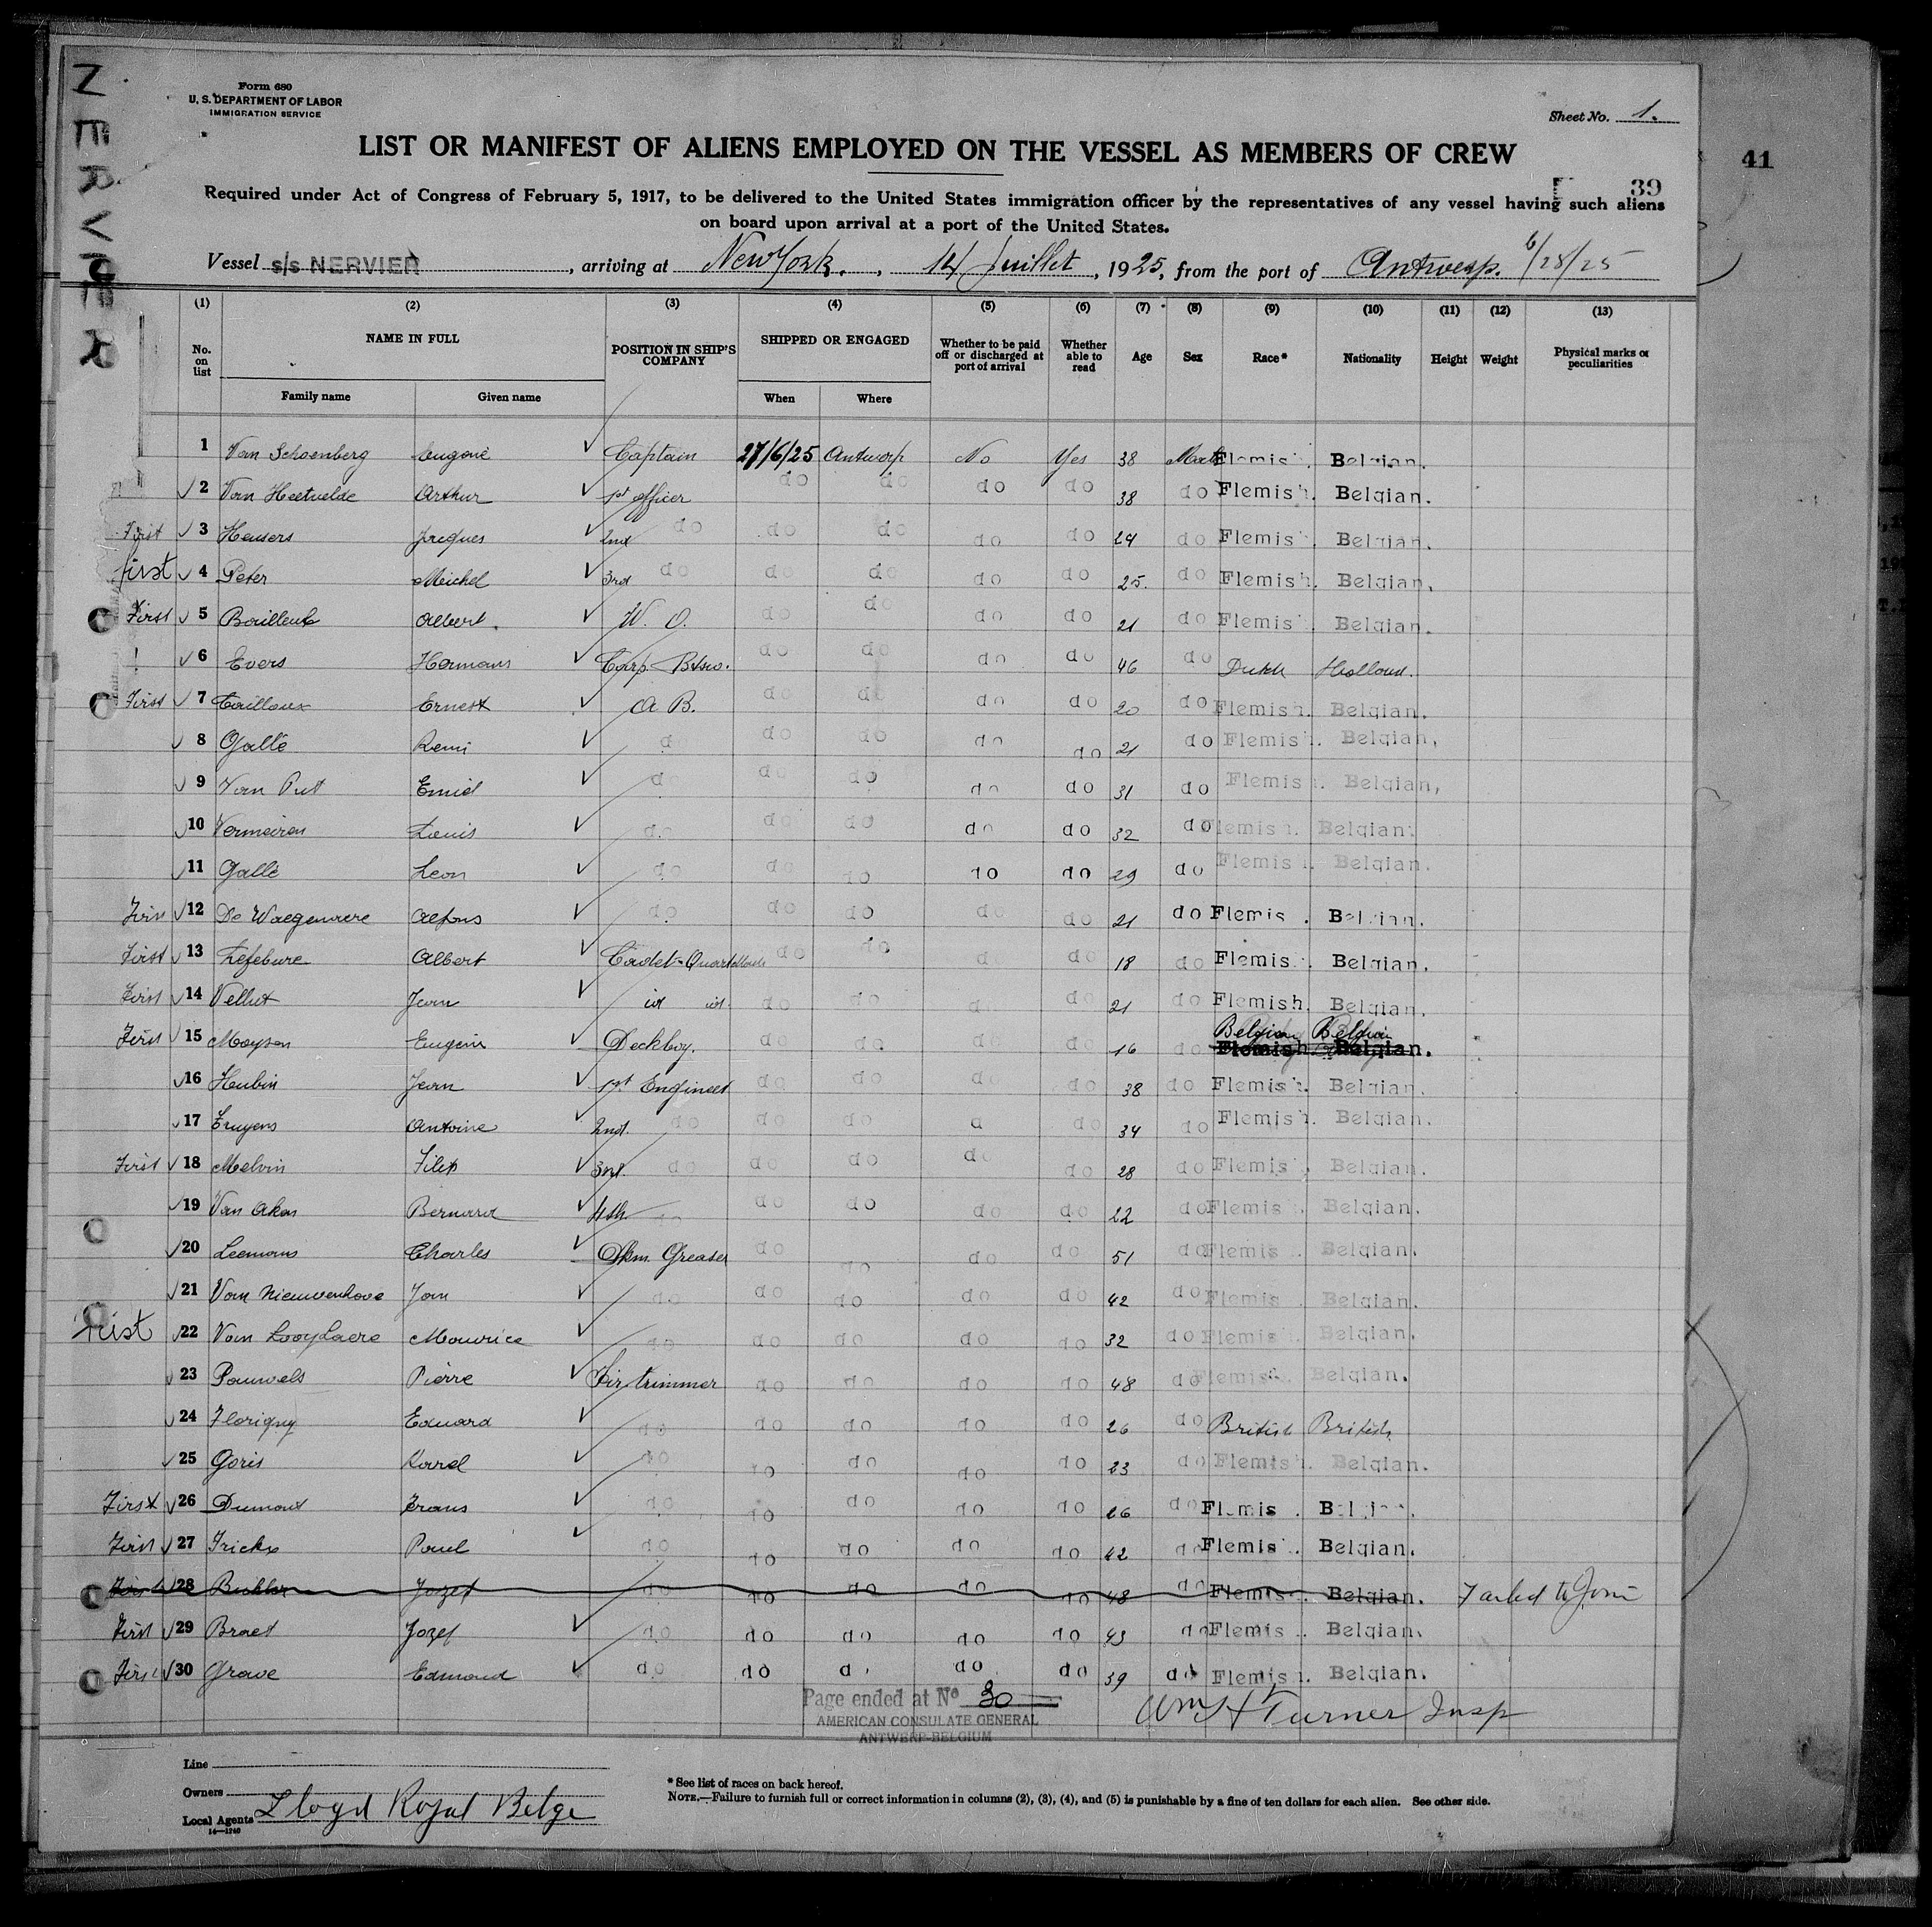 NERVIER
Form 680
U. S. DEPARTMENT OF LABOR
IMMIGRATION SERVICE
Sheet No. 1.
41
LIST OR MANIFEST OF ALIENS EMPLOYED ON THE VESSEL AS MEMBERS OF CREW
39
Required under Act of Congress of February 5, 1917, to be delivered to the United States immigration officer by the representatives of any vessel having such aliens
on board upon arrival at a port of the United States.
Vessel s/s NERVIER, arriving at New York., 14 Juillet, 1925, from the port of Antwerp. 6/28/25
(1) (2) (3) (4) (5) (6) (7) (8) (9) (10) (11) (12) (13)
No. on list NAME IN FULL POSITION IN SHIP'S COMPANY SHIPPED OR ENGAGED Whether to be paid off or discharged at port of arrival Whether able to read Age Sex Race* Nationality Height Weight Physical marks or peculiarities
Family name Given name When Where
1 Van Schoenberg Captain 27/6/25 Antwerp No Yes 38 Male Flemish. Belgian.
2 Van Heetvelde Arthur 1st officer do do do do 38 do Flemish. Belgian.
First 3 Heusers Jacques 2nd do do do do do 29 do Flemish. Belgian.
first 4 Peter Michel 3rd do do do do do 25. do Flemish. Belgian.
First 5 Albert. W. O. do do do do 21 do Flemish. Belgian.
6 Evers Hermans Carp. Btsw. do do do do 46 do Dutch Holland.
First 7 Cailloux Ernest A B. do do do do 20 do Flemish. Belgian.
8 Gallé Remi do do do do do 21 do Flemish. Belgian.
9 Van Put Emiel do do do do do 31 do Flemish. Belgian.
10 Vermeiren Louis do do do do do 32 do Flemish. Belgian.
11 Gallé Leon do do do do do 29 do Flemish. Belgian.
First 12 De Waegenaere Alfons do do do do do 21 do Flemish. Belgian.
First 13 Lefebure Albert Cadet-Quart do do do do 18 do Flemish. Belgian.
First 14 Jean id id. do do do do 21 do Flemish. Belgian.
First 15 Moyson Eugein Deckboy. do do do do 16 do Belgian Belgian
Flemish. Belgian.
16 Heubin Jean 1st Engineer do do do do 38 do Flemish. Belgian.
17 Antoine 2nd. do do do do do 34 do Flemish. Belgian.
First 18 Melvin Filip 3rd. do do do do do 28 do Flemish. Belgian.
19 Van Aken Bernard 4th do do do do do 22 do Flemish. Belgian.
20 Leemans Charles Dkm. Greaser do do do do 51 do Flemish. Belgian.
21 Van Nieuwenhove Jan do do do do do 42 do Flemish. Belgian.
First 22 Van Looylaere Maurice do do do do do 32 do Flemish. Belgian.
23 Pauwels Pierre Fir trimmer do do do do 48 do Flemish. Belgian.
24 Florigny Eduard do do do do do 26 do British British
25 Goris Karel do do do do do 23 do Flemish. Belgian.
First 26 Dumont Frans do do do do do 26 do Flemish. Belgian.
First 27 Frickx Paul do do do do do 42 do Flemish. Belgian.
First 28 Jozef do do do do do 48 do Flemish. Belgian. Failed to Join
First 29 Braet Jozef do do do do do 43 do Flemish. Belgian.
First 30 Grave Edmond do do do do do 39 do Flemish. Belgian.
Page ended at No 30
AMERICAN CONSULATE GENERAL
ANTWERP-BELGIUM
Wm H Turner Insp
Line
Owners
Local Agents Lloyd Royal Belge
14—1240
* See list of races on back hereof.
NOTE.—Failure to furnish full or correct information in columns (2), (3), (4), and (5) is punishable by a fine of ten dollars for each alien. See other side.